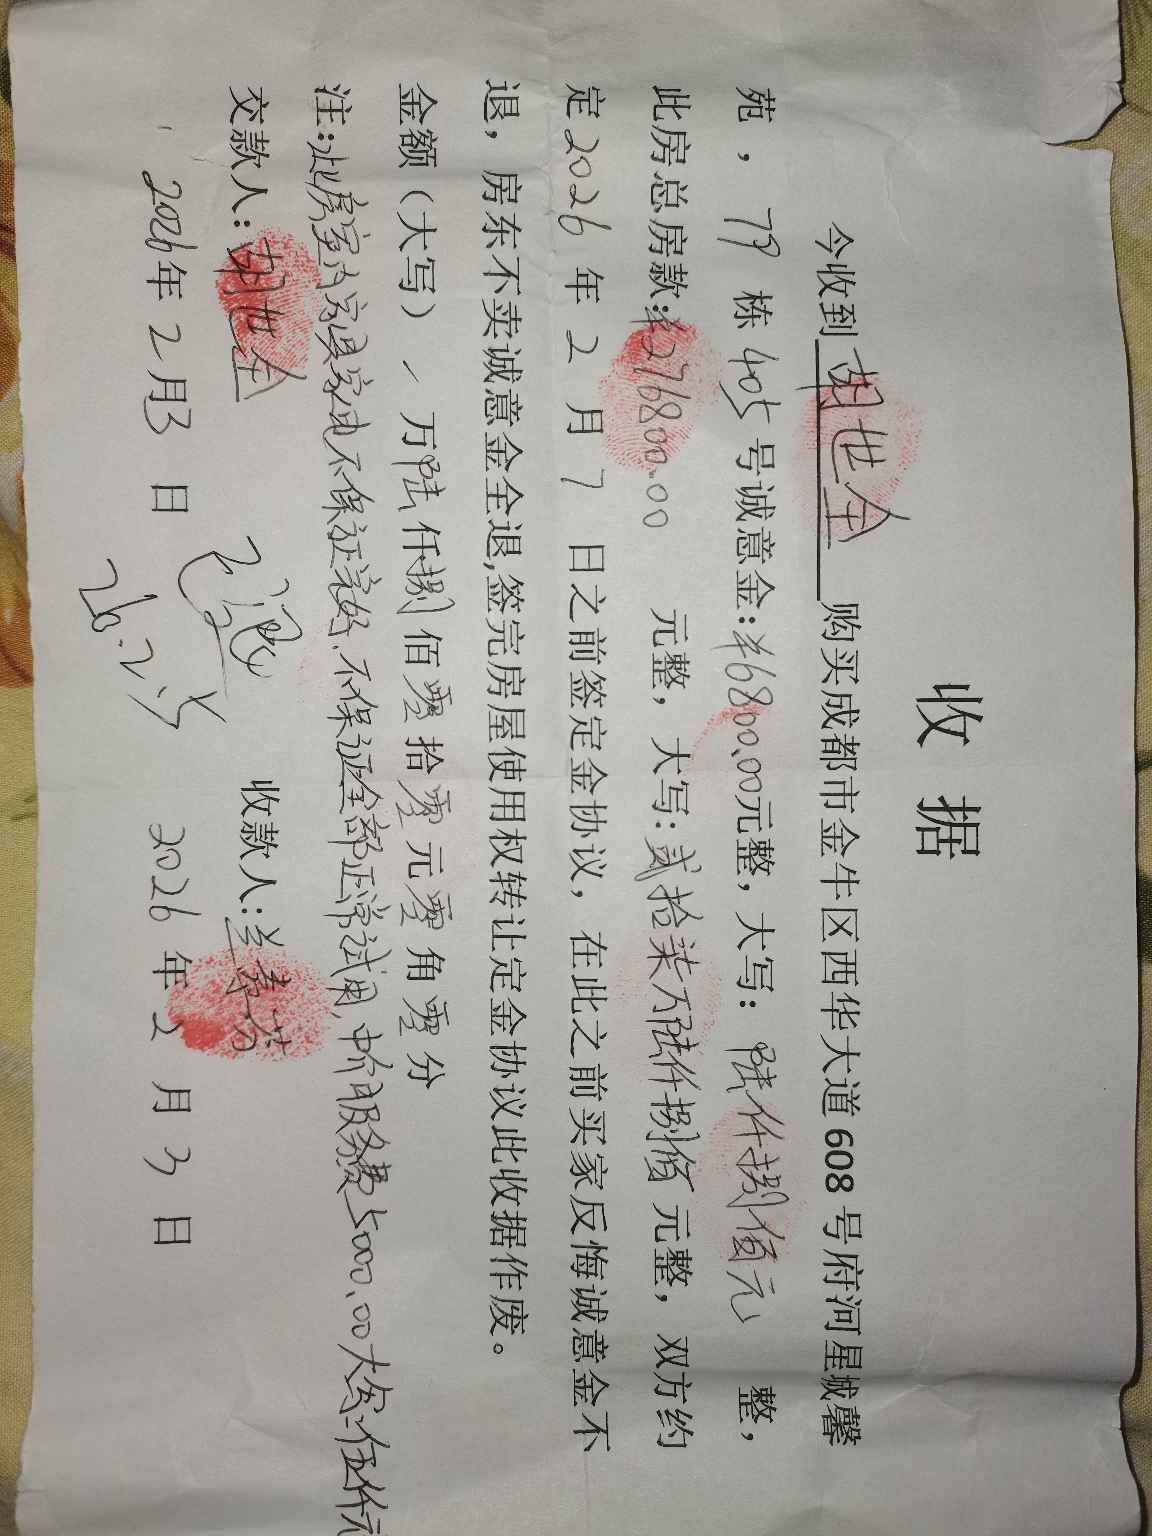 收 据
今收到 胡世全 购买成都市金牛区西华大道 608 号府河星城馨
苑，79 栋 405 号诚意金：¥6800.00元整，大写：陆仟捌佰元 整，
此房总房款：¥276800.00 元整，大写：贰拾柒万陆仟捌佰 元整，双方约
定 2026 年 2 月 7 日之前签定金协议，在此之前买家反悔诚意金不
退，房东不卖诚意金全退,签完房屋使用权转让定金协议此收据作废。
金额（大写） 万 陆 仟 捌 佰 零 拾 零 元 零 角 零 分
注：此房室内家具家电不保证完好、不保证全部正常试用，中介服务费5000.00大写：伍仟元
交款人：胡世全 收款人：兰
2026年 2 月 3 日 2026 年 2 月 3 日
26.2.5